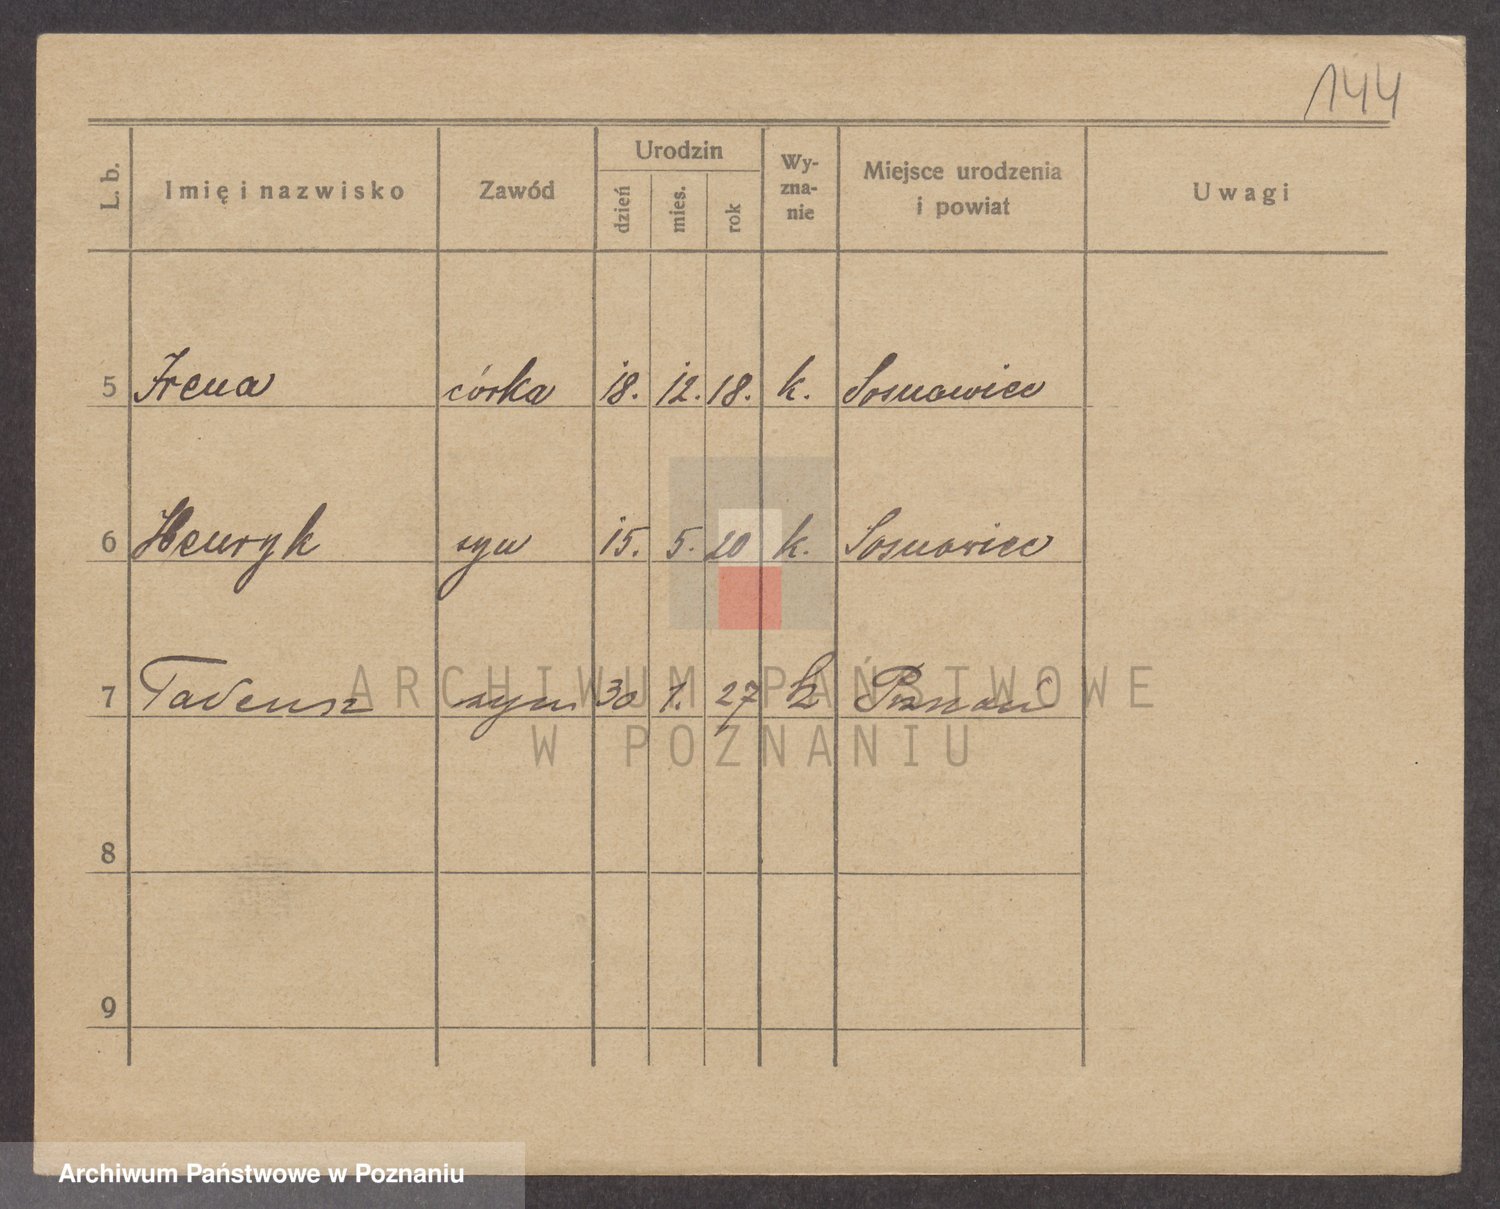 144
L. b. Imię i nazwisko Zawód Urodzin dzień mies. rok Wy-zna-nie Miejsce urodzenia i powiat Uwagi
5 Irena córka 18. 12. 18. k. Sosnowiec
6 Henryk syn 15. 5. 20 k. Sosnowiec
7 Tadeusz syn 30 1. 27 k Poznań
8
9
ARCHIWUM PAŃSTWOWE
W POZNANIU
Archiwum Państwowe w Poznaniu